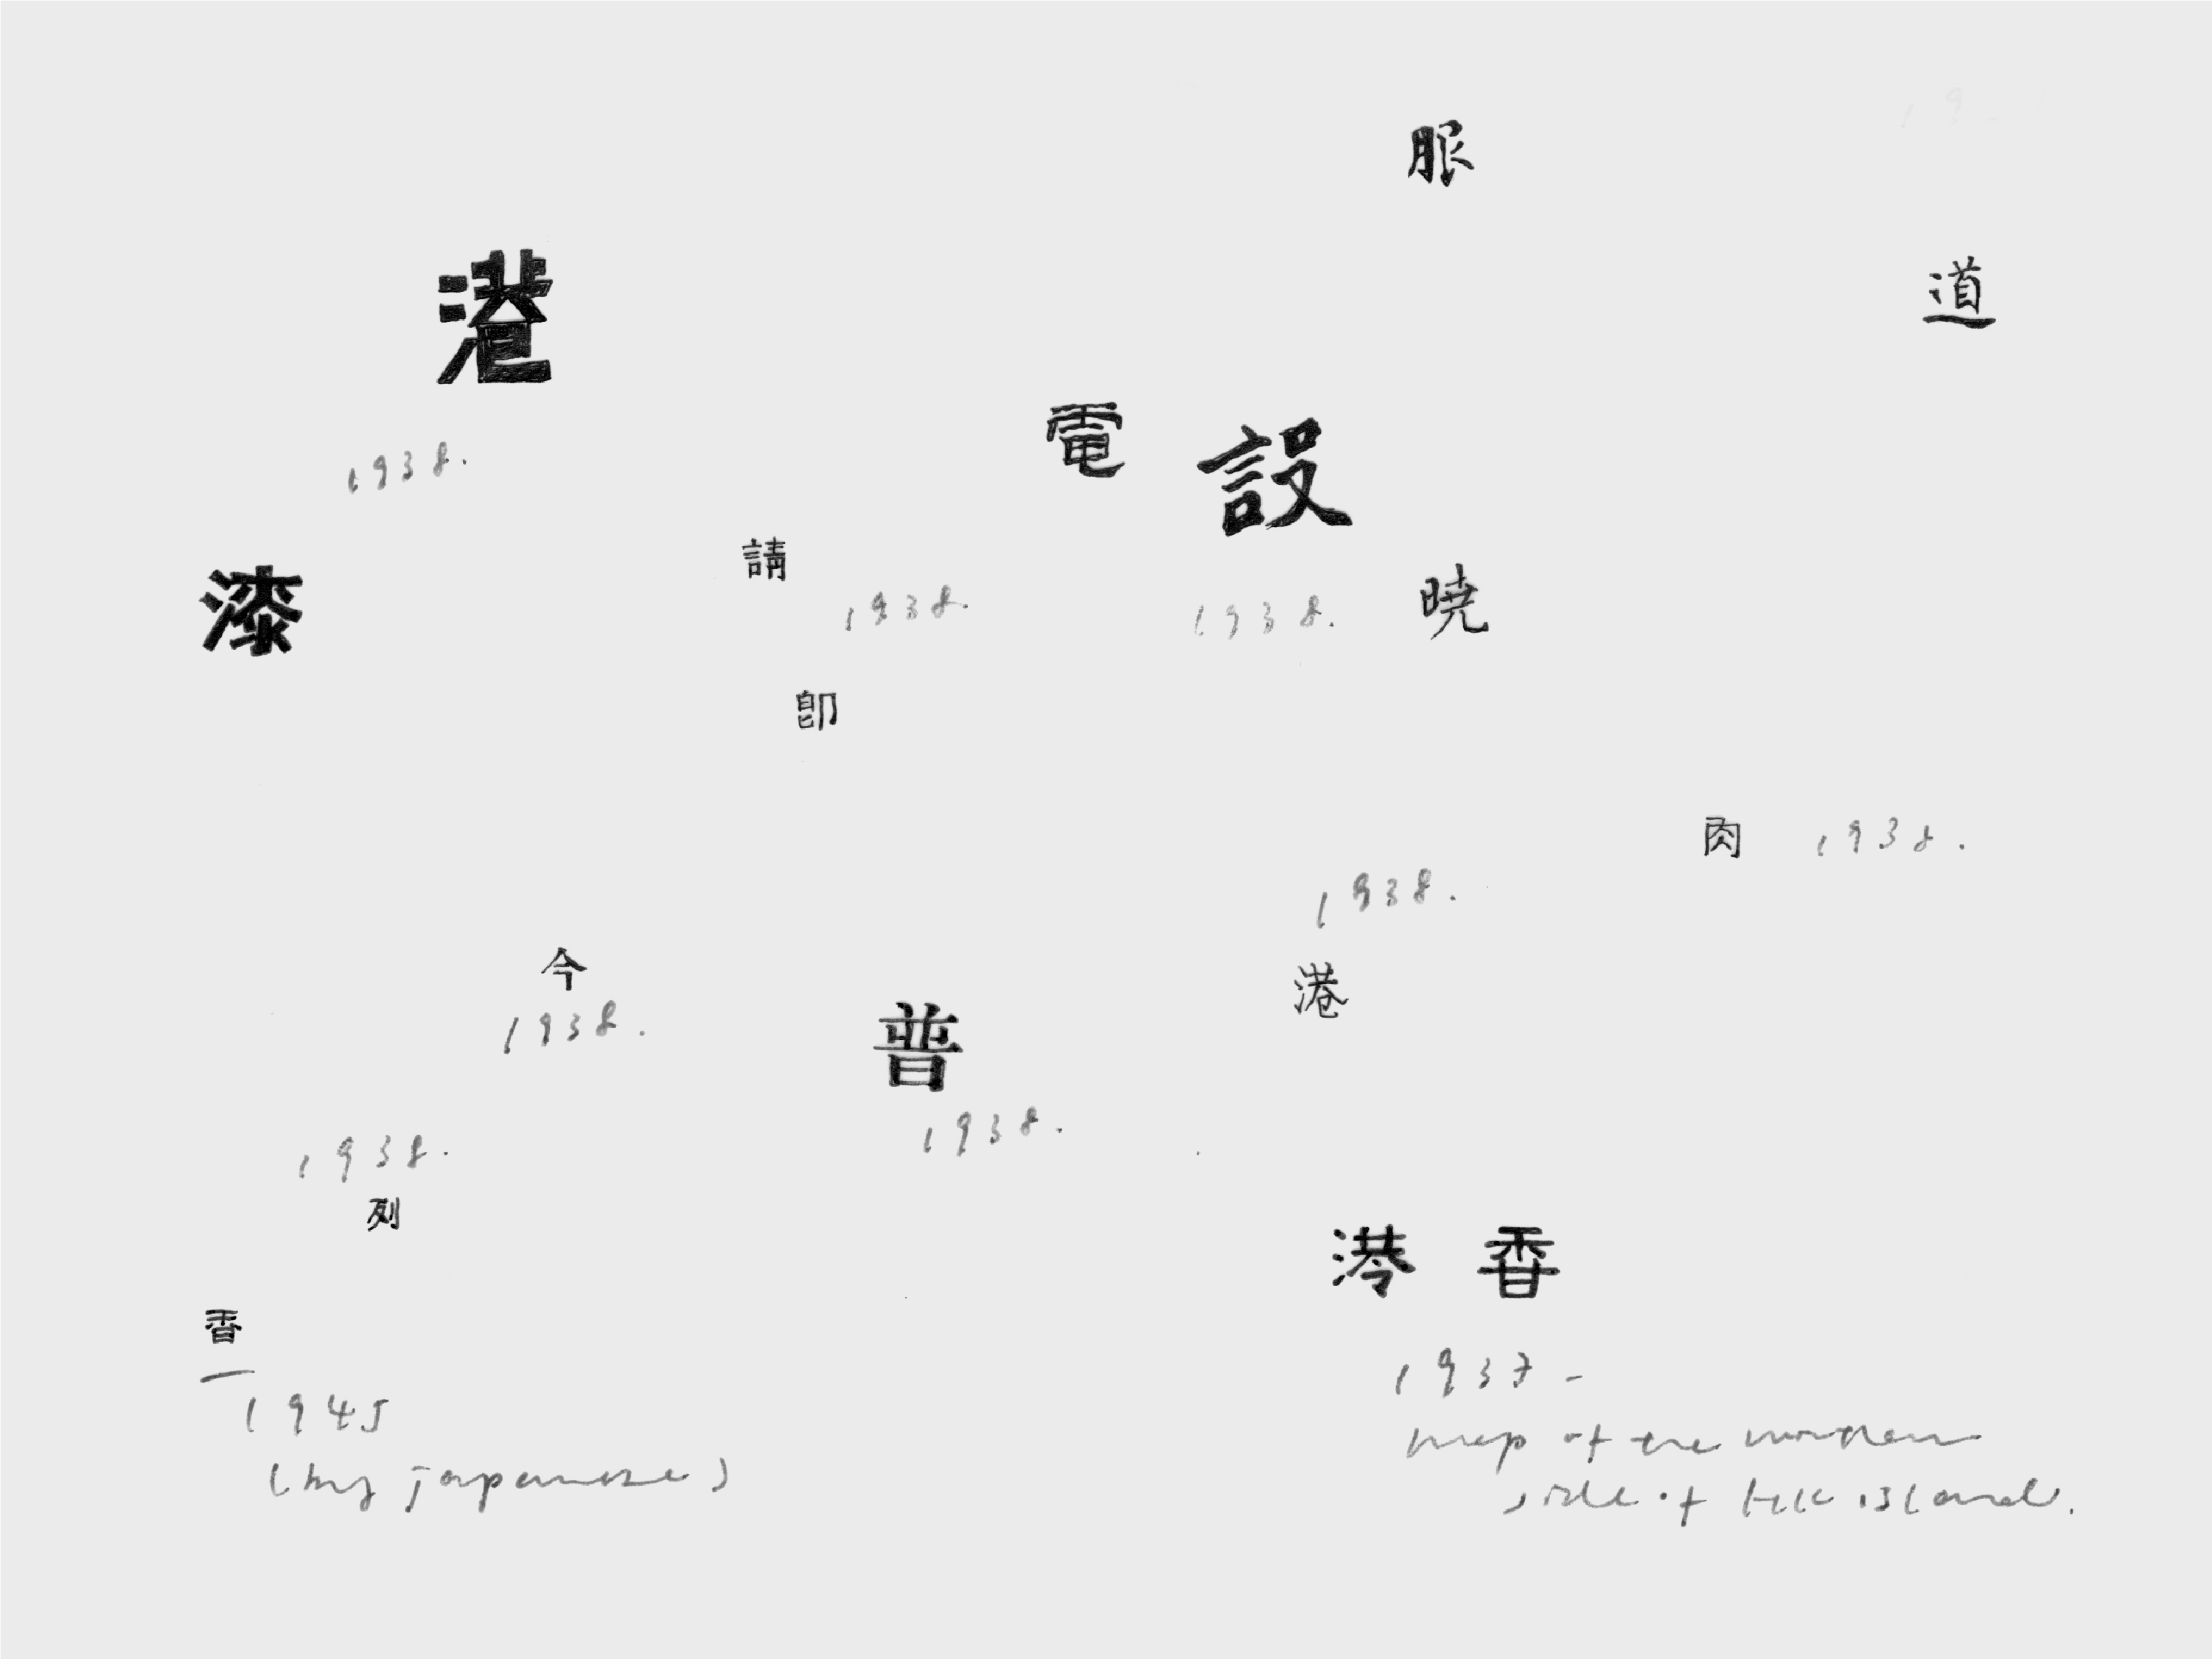 服
道
港
電 設
1938.
請
漆
1938.
1938.
暁
卽
肉 1938.
1938.
今
港
1938.
普
1938.
1938.
列
港 香
香
1937-
1945
map of the northern
(by japanese)
side of HK island.